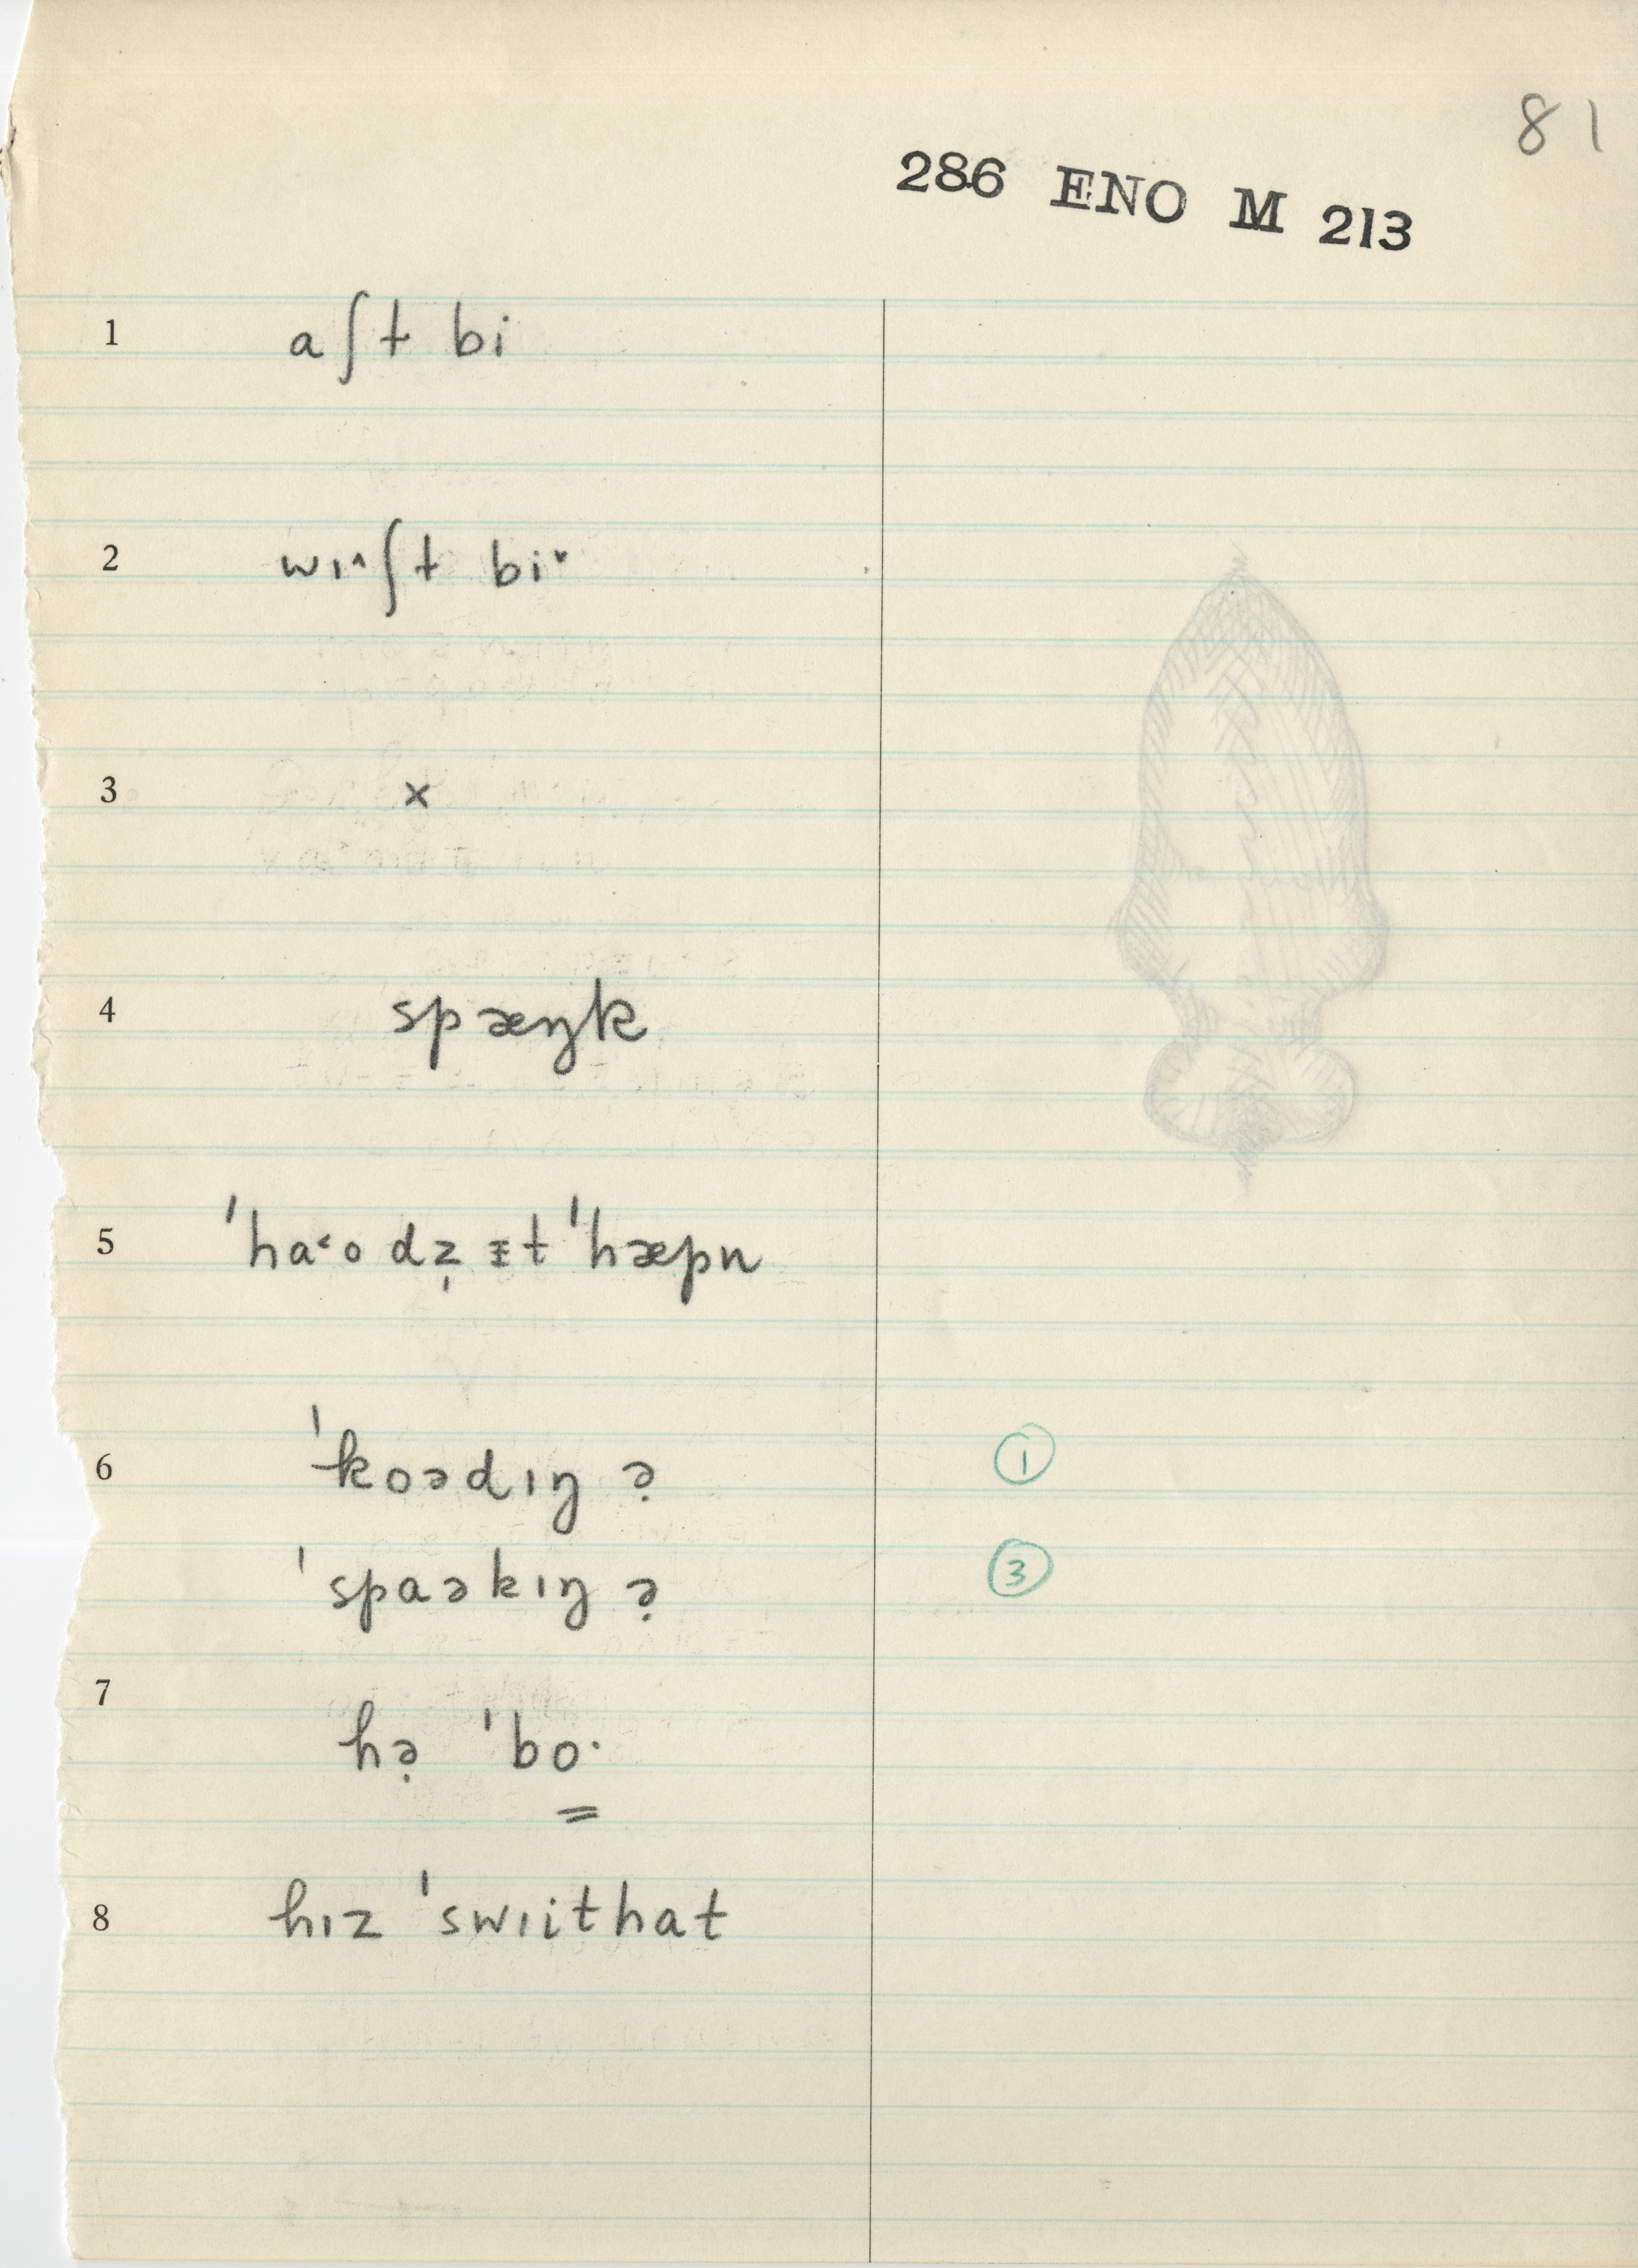 81
286 ENO M 213
1 aʃt bi
2 wɪ˄ʃt bi˅
3 x
4 spæŋk
5 ˈha˂o dz̩ ᵻt ˈhæpn
6 ˈkoədɪŋ ə̣ ①
ˈspaəkɪŋ ə̣ ③
7 hə̣ ˈbo·
8 hɪz ˈswɪithat